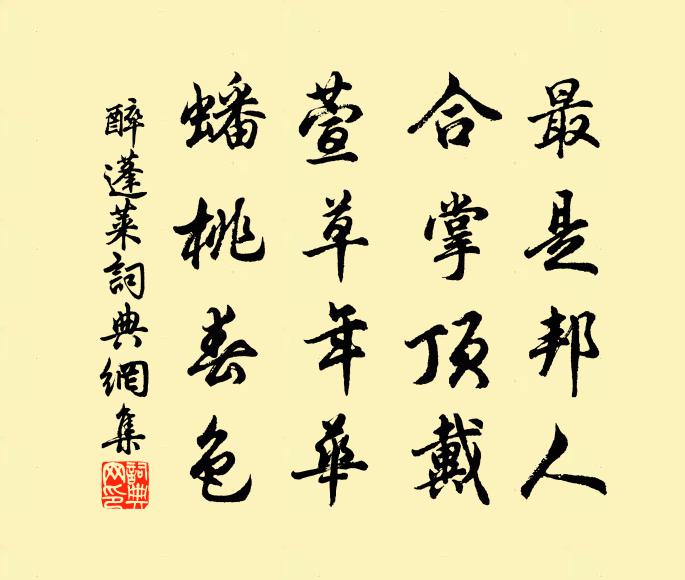 最是邦人
合掌頂戴
萱草年華
蟠桃春色
醉蓬萊詞典網集
詞典網印